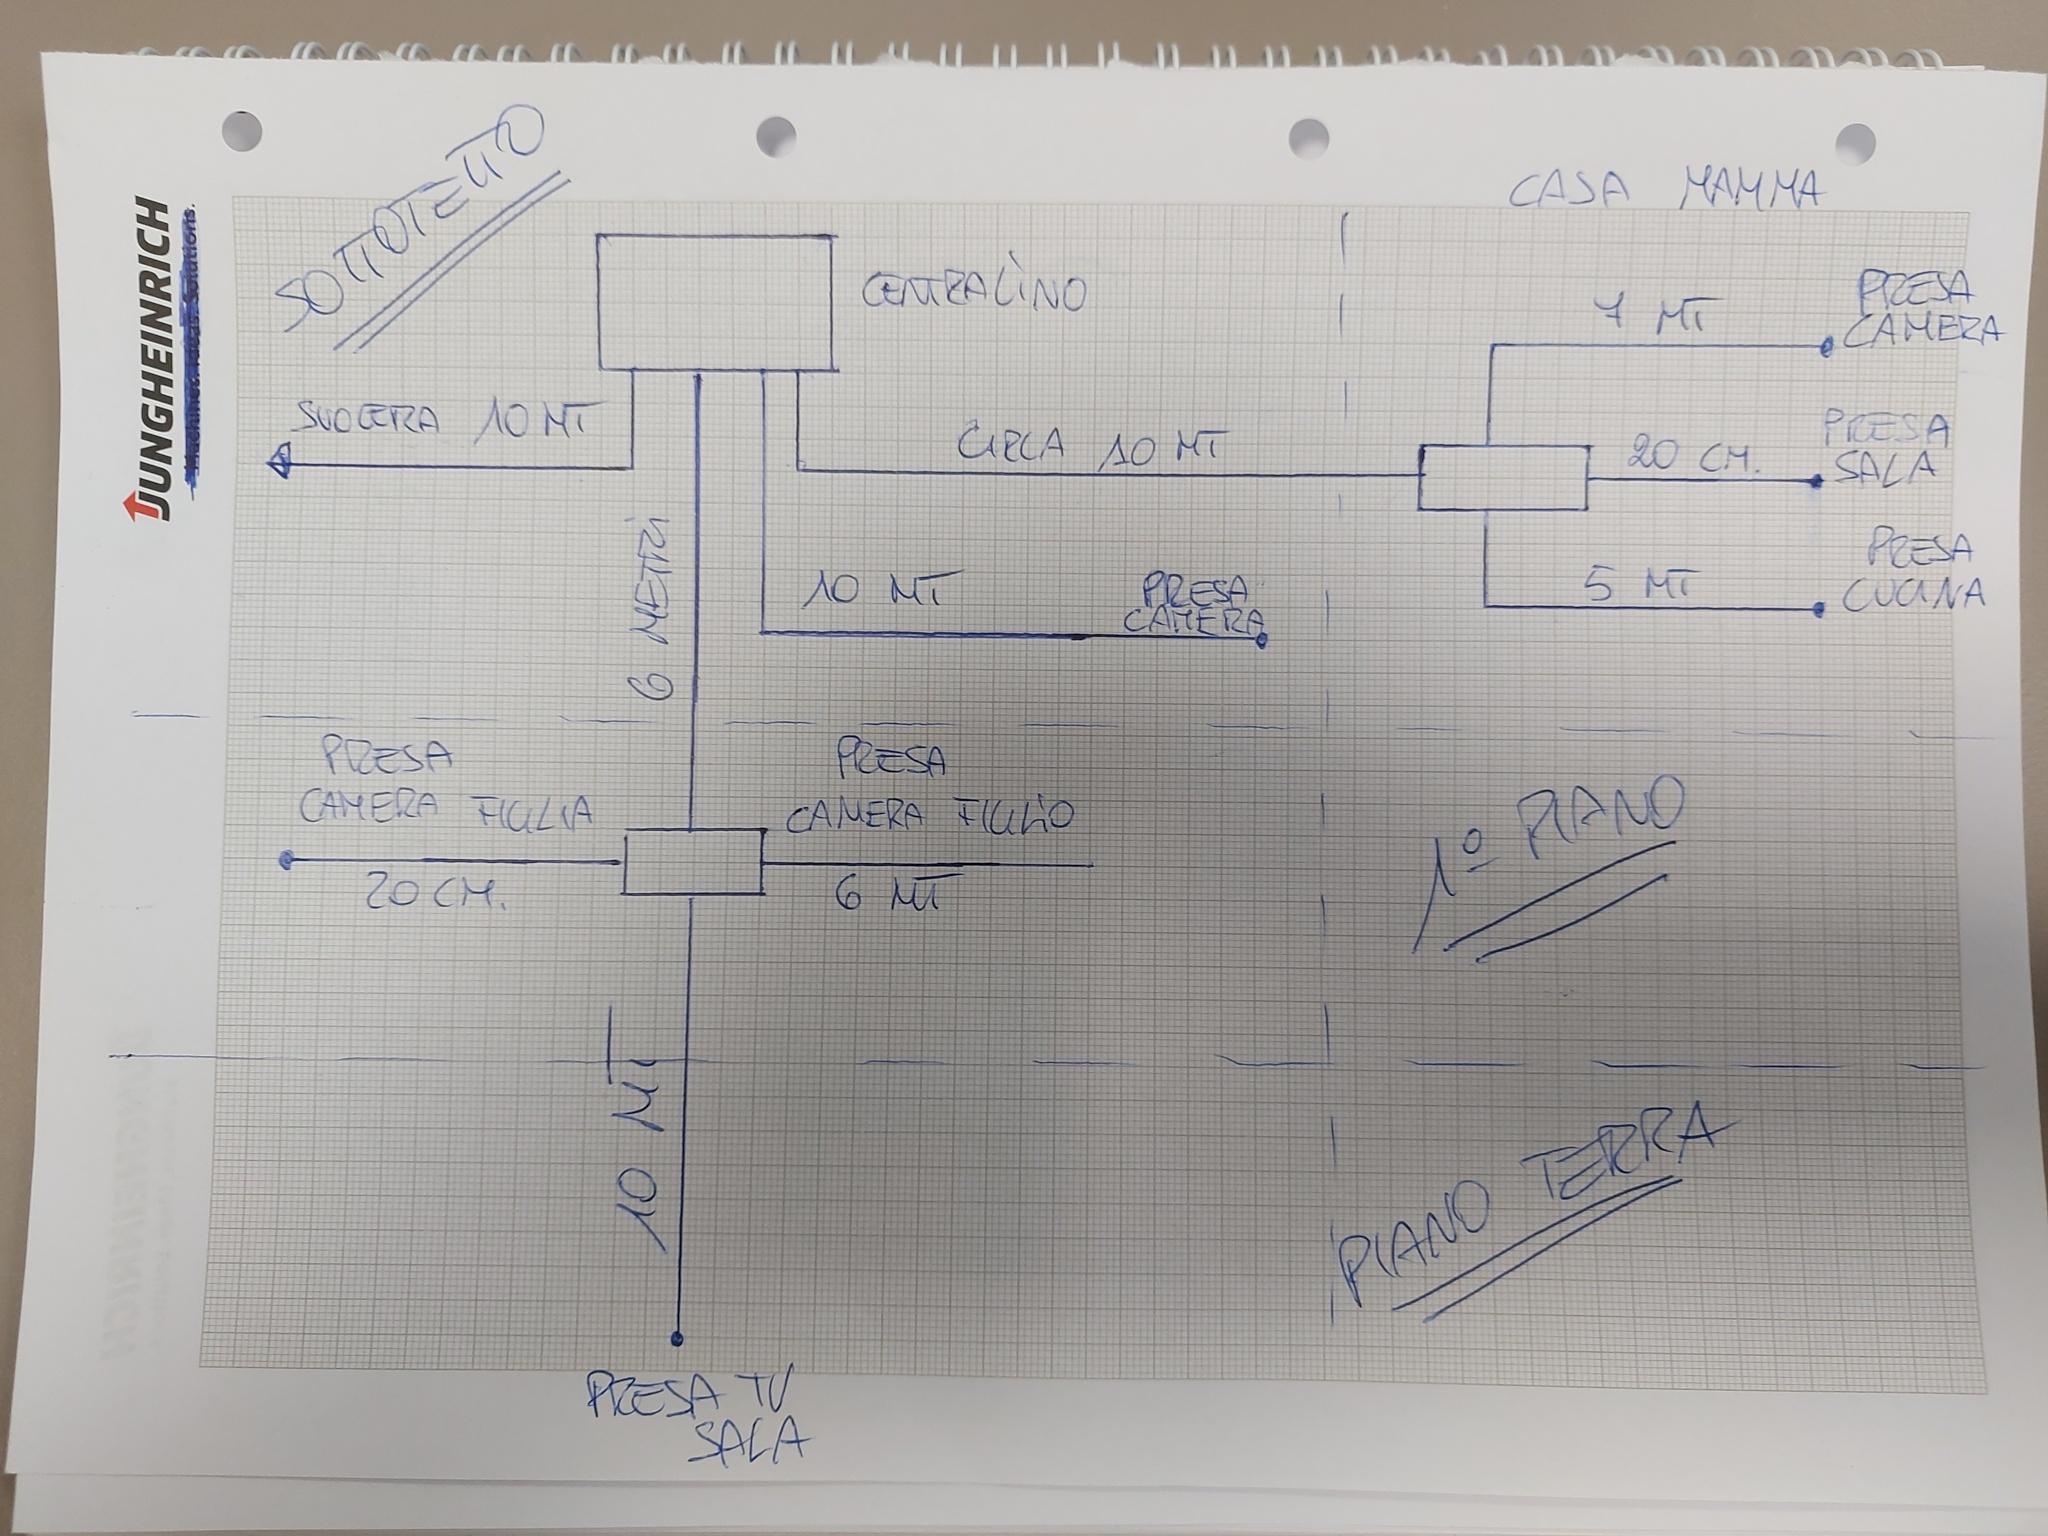 JUNGHEINRICH
SOTTOTETTO
CASA MAMMA
CENTRALINO
7 MT
PRESA
CAMERA
SUOCERA 10 MT
CIRCA 10 MT
20 CM.
PRESA
SALA
6 METRI
10 MT
PRESA
CAMERA
5 MT
PRESA
CUCINA
PRESA
CAMERA FIGLIA
20 CM.
PRESA
CAMERA FIGLIO
6 MT
1º PIANO
10 MT
PIANO TERRA
PRESA TV
SALA